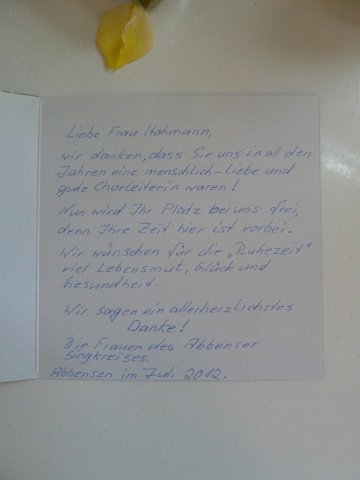 Liebe Frau Hohmann,
wir danken, dass Sie uns in all den
Jahren eine menschlich-liebe und
gute Chorleiterin waren!
Nun wird Ihr Platz bei uns frei,
denn Ihre Zeit hier ist vorbei.
Wir wünschen für die „Ruhezeit"
viel Lebensmut, Glück und
Gesundheit.
Wir sagen ein allerherzlichstes
Danke!
Die Frauen des Abbenser
Singkreises.
Abbensen im Juli 2012.